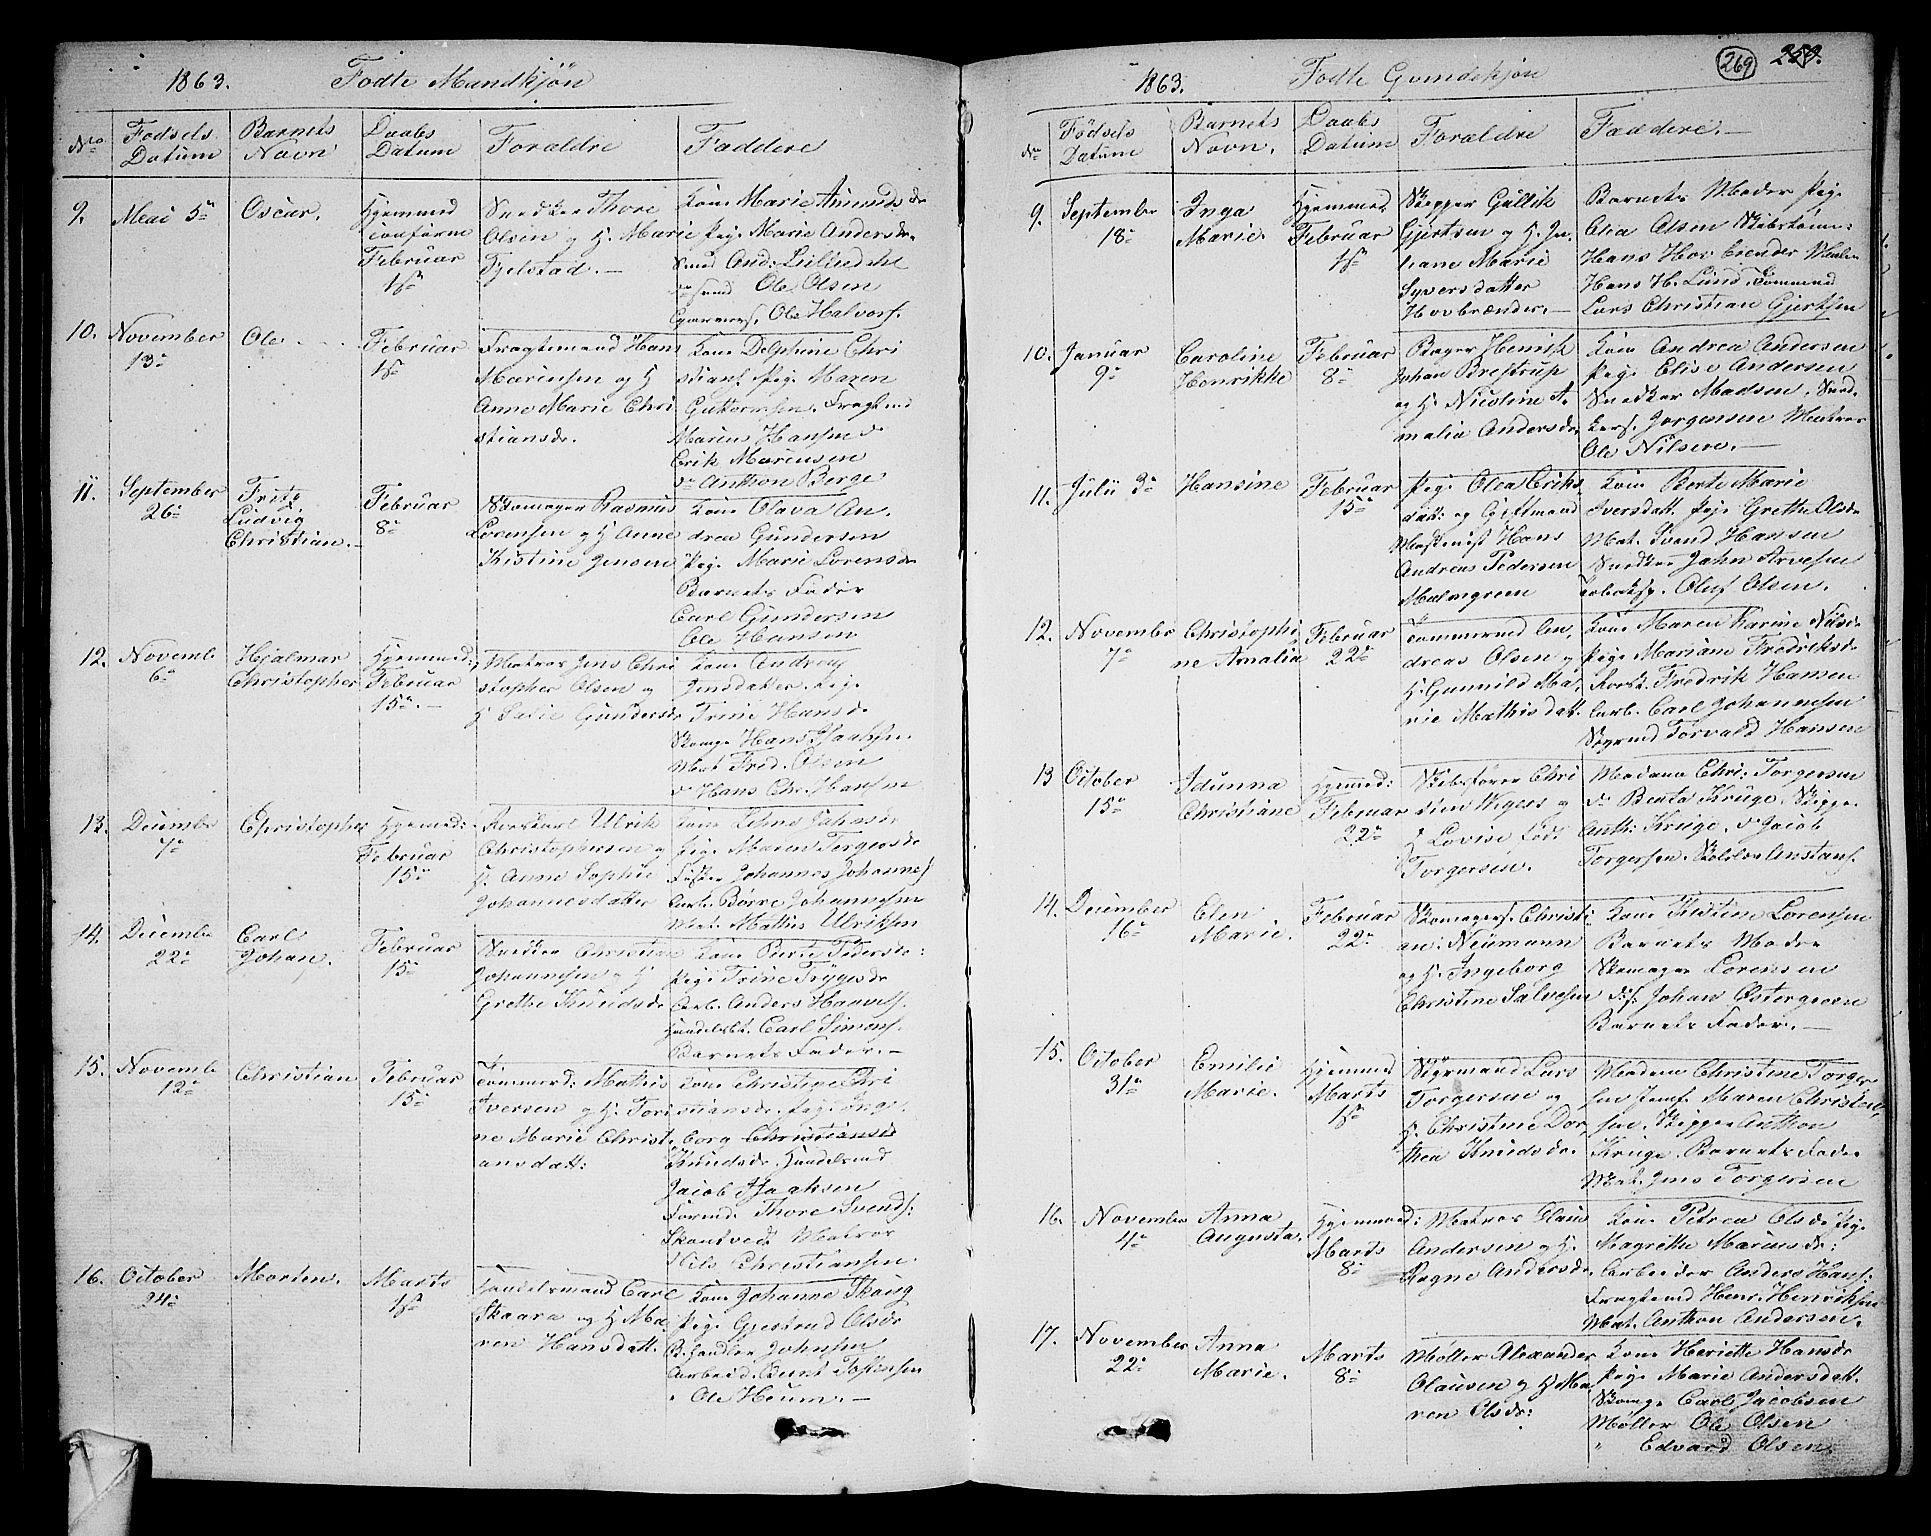 1863. Fodte Mandkjön
No Fodsels Datum Barnets Navn Daabs Datum Foraldre Faddere
9. Mai 5te Oscar. Hjemmed.
Februar
Snedker Thore
Olsen og H. Marie
Fjelstad.
Kone Marie Amunds d.
Pige Marie Andersd.
Ole Olsen
Ole Halvors.
10. November 13de Ole
Februar 1ste
Fragtemand Hans
Marensen og H
Anne Marie Chri
stiansdr.
Kone Delphine Chri
stians. Pige Maren
Guttormsen. Fragtmd
Maren Hansen
Erik Marensen
do Anthon Berge
11. September 26de Fritz
Ludvig
Christian.
Februar 8de
Skomager Rasmus
Lorensen og H Anne
Kistine Jensen
Kone Olava An.
drea Gundersen
Pige Marie Lorensdr
Barnets Fader
Carl Gundersen
Ole Hansen
12. Novemb. 6te Hjalmar
Christopher
Hjemmed:
Februar
15de
Matros Jens Chri
stopher Olsen og
H Gundersdr
Kone
Jensdatter. Pige
Trine Hansdr
Skomgr Hans Isaaksen.
Mat. Fred. Olsen
do Hans Chr. Hansen
13. December 7de Christopher
Hjemmed:
Februar
15de
Ulrik
Christophersen og
H. Anne Sophie
Johannesdatter
Kone
Pige Maren Torgersdr
Fisker Johannes Johannes
Arb. Börre Johannesen
Mat. Mathis Ulriksen
14. December 22de Carl
Johan.
Februar
15de
Snedker Christian
Johannesen og H
Grethe Knudsdr
Kone Pedersdr:
Pige Trine Trygesdr
Arb. Anders
Carl Simons.
Barnets Fader.
15. Novemb. 12te Christian
Februar
15de
Tommermd: Mathis
Iversen og H. Tor
ne Marie Christ
ansdatt:
Kone Christine Chri
stiansdr. Pige Inge
borg Christiansd
Knudsdr. Handelsmd
Jacob Isaaksen
Formd. Thore Svends:
Skontvedt Matros
Nils Christiansen.
16. October 24de Morten.
Marts
1ste
Handelsmand Carl
Skaara og H Ma
ren Hansdatt.
Kone Johanne Skoug
Pige Gjertrud Olsdr
B. handler Johnsen
Arbeid. Bernt Tostensen
" Ole Heum.

269 259.
1863. Fodte Qvindekjön
No Födsels Datum Barnets Navn. Daabs Datum Forældre Faddere.
9. September
18de
Inga
Marie.
Hjemmed.
Februar
1ste
Skipper Gullik
Gjertsen og H. Ju
liane Marie
Syversdatter
Hovbrænder.
Barnets Moder Pige
Olea Olsen Skibstömr:
Hans Hovbrender Maler
Hans H. Lund. Tömmermd
Lars Christian Gjertsen
10. Januar
9de
Caroline
Henrikke
Februar
8de
Bager Henrik
Johan Brestrup
og H. Nicoline A.
malia Andersdr
Kone Andrea Andersen
Pige Elise Andersen
Snedker Madsen. Sned.
kers. Jorgensen Matros
Ole Nilsen.
11. Julii 3de Hansine
Februar
15de
Pige Olea Eriks
datt: og Giftmand
Maskinist Hans
Andreas Pedersen
Malmgreen
Kone Berte Marie
Iversdatt. Pige Grethe Olsdr
Mat. Svend Hansen
Snedker John Arvesen
Arbeidsf. Oluf Olsen.
12. November
7de
Christophi
ne Amalia
Februar
22de
Tommermd An,
dreas Olsen og
H. Gunnild Ma,
rie Mathisdatt.
Kone Maren Karine Nilsdr
Pige Mariane Fredriksdr
Fredrik Hansen
Arb. Carl Johannesen
Styrmd Torvald Hansen
13 October
15de
Idunna
Christiane
Hjemmed:
Februar
22de
Skibsförer Chri
stian Wigers og
H Lovise födt
Torgersen.
Madame Chri: Torgersen
do Berta Kruge. Skipper
Anth: Kruge. do Jacob
Torgersen.
14. December
16de
Elen
Marie.
Februar
22de
Skomagers. Christi
an: Neumann
og H. Ingeborg
Christine Salvesen
Kone Kistine Lorensen
Barnets Moder
Skomager Lorensen
do s. Johan Ostergreen
Barnets Fader.
15. October
31te
Emilie
Marie.
Hjemmed
Marts
1ste
Styrmand Lars
Torgersen og
H. Christine Dor,
thea Knudsdr.
Madam Christine Torger
sen Jomf. Maren Christen,
sen. Skipper Anthon
Kruge. Barnets Fader
Mat. Jens Torgersen
16. November
4de
Anna
Augusta.
Hjemmed:
Marts
8de
Matros Claus
Andersen og H.
Ragne Andersdr.
Kone Petrea Olsdr Pige
Magrethe Mariusdr:
Arbeider Anders Hans:
Fragtemd Henr. Henriksen
Mat. Anthon Andersen.
17. November
22de
Anna
Marie.
Marts
8de
Møller Alexander
Olausen og H Ma
ren Olsdr:
Kone Henriette Hansdr
Pige Marie Andersdatt.
Skomgr Carl Jacobsen
Møller Ole Olsen
" Edvard Olsen.